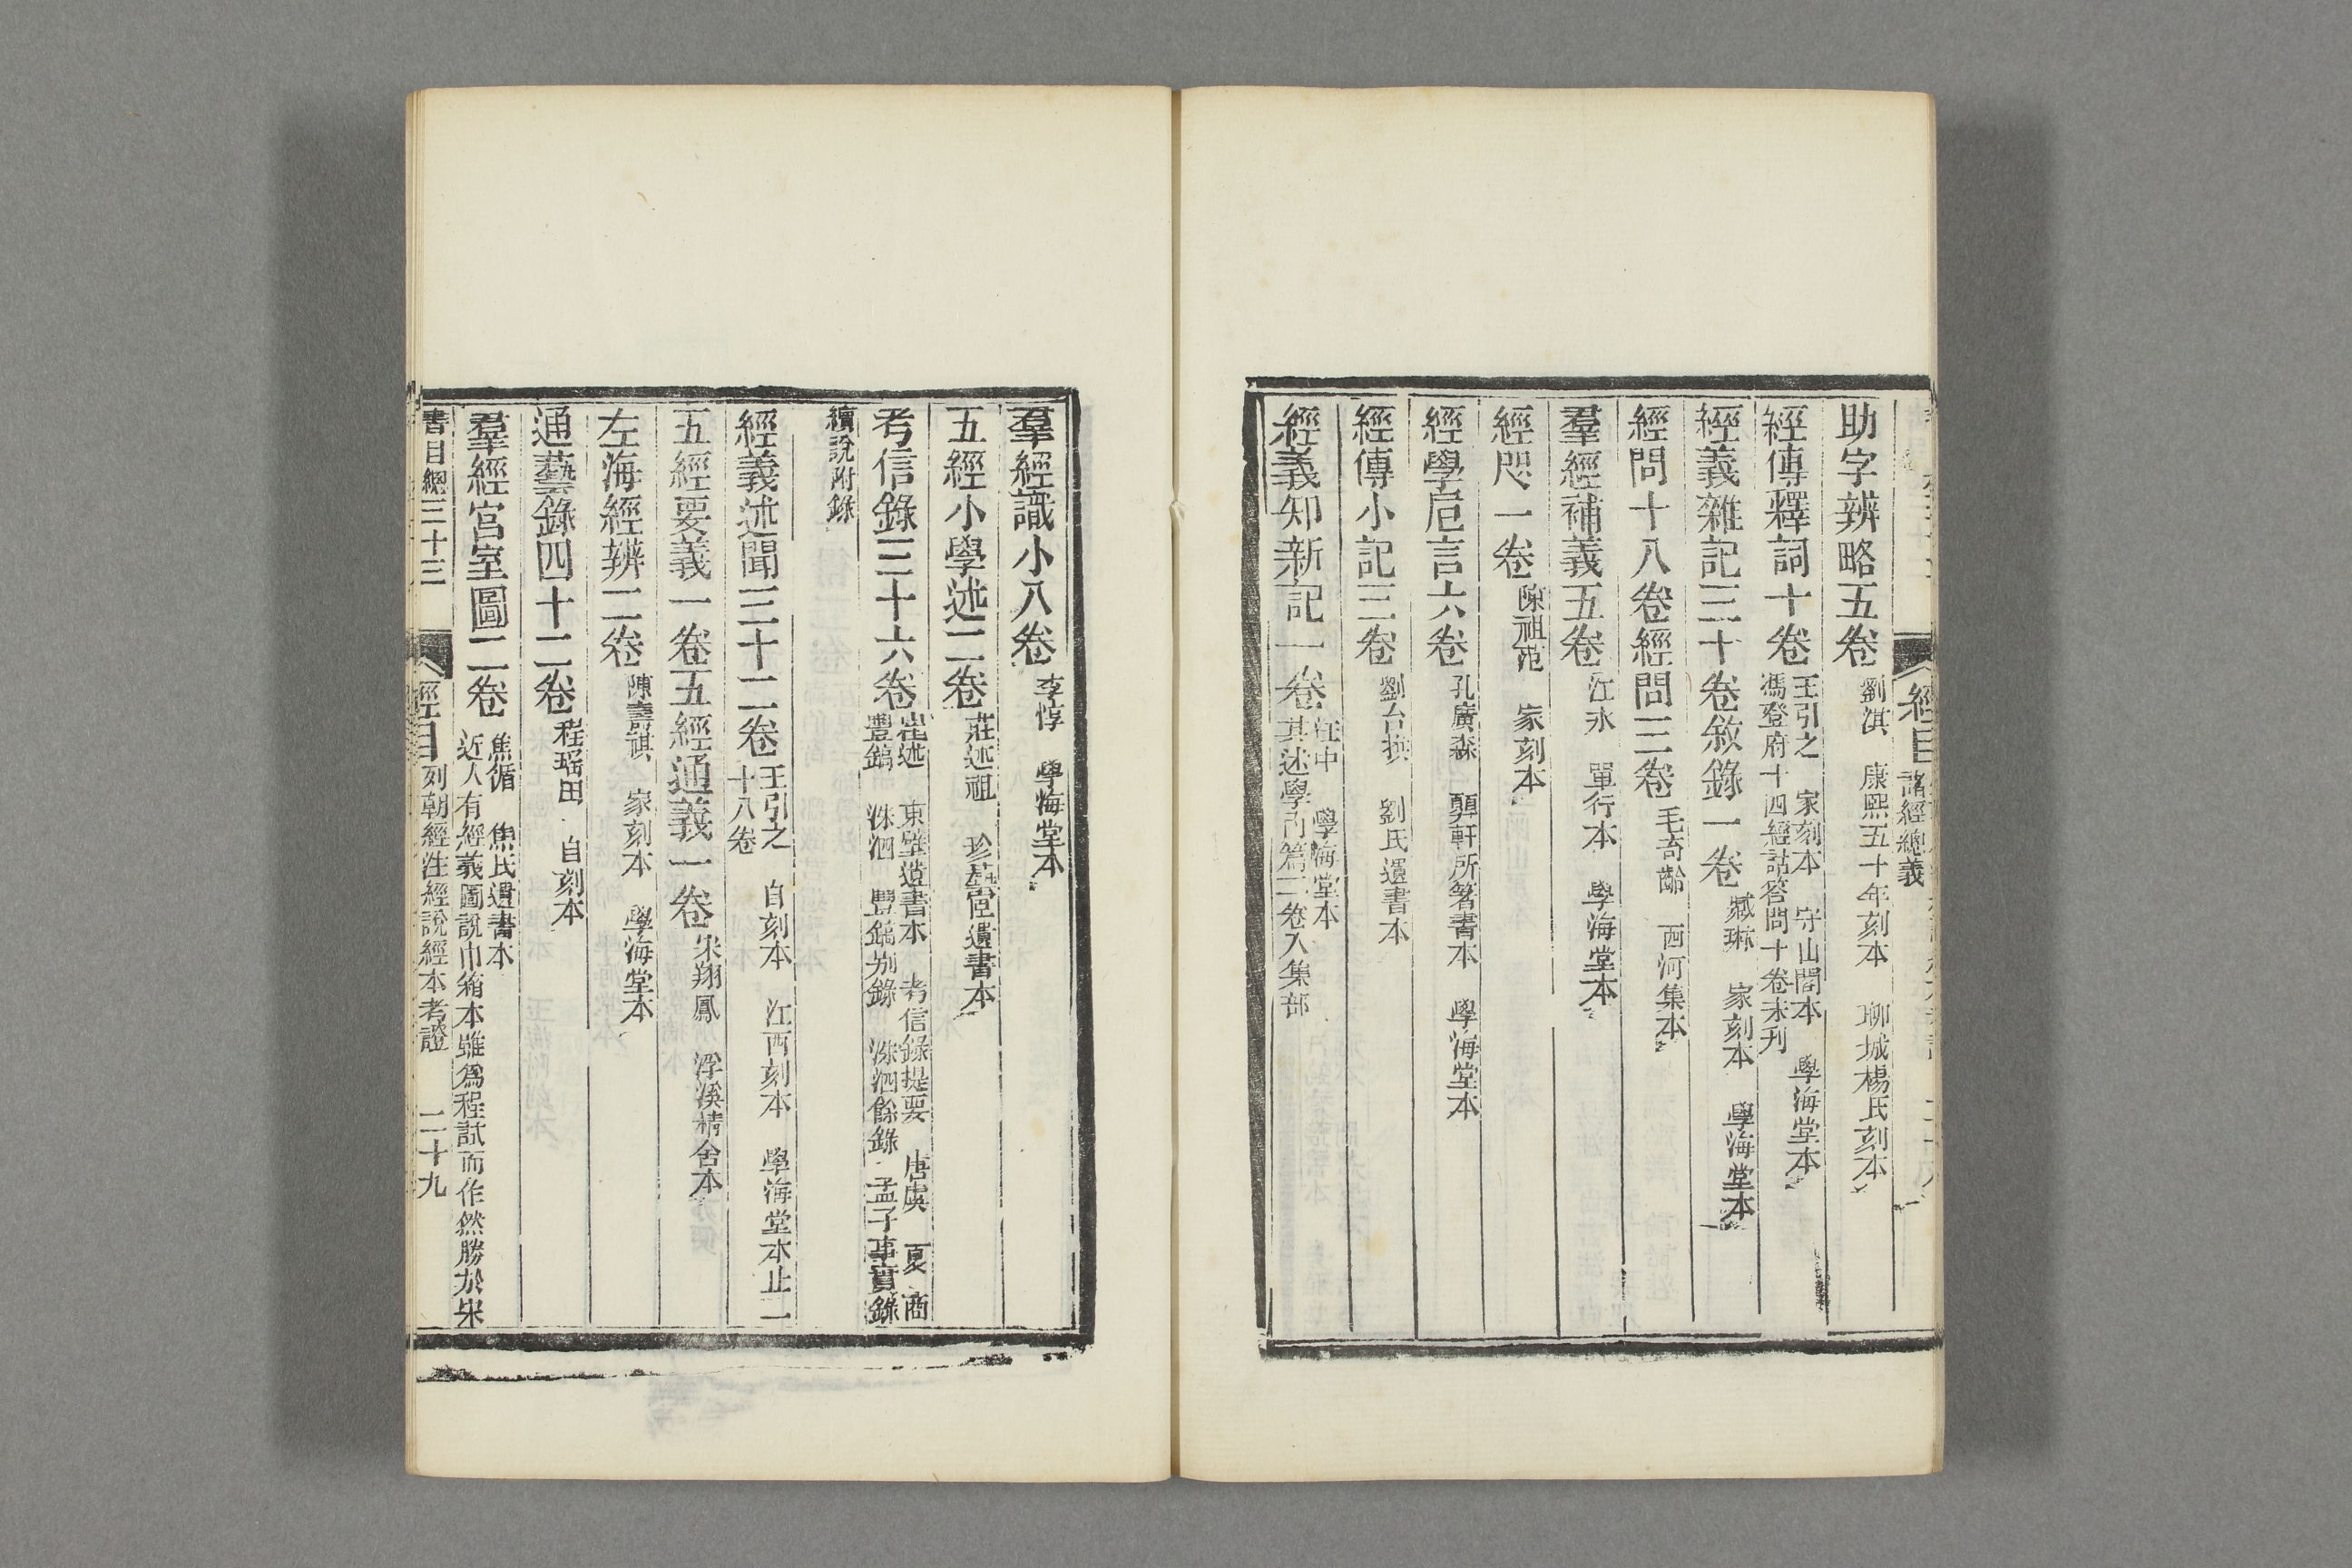 經目 諸經總義
助字辨略五卷 劉淇 康熙五十年刻本 聊城楊氏刻本
經傳釋詞十卷 王引之 家刻本 守山閣本 學海堂本
馮登府十四經詁答問十卷未刋
經義雜記三十卷敘錄一卷 臧琳 家刻本 學海堂本
經問十八卷經問三卷 毛奇齡 西河集本
羣經補義五卷 江永 單行本 學海堂本
經咫一卷 陳祖范 家刻本
經學卮言六卷 孔廣森 顨軒所箸書本 學海堂本
經傳小記三卷 劉台拱 劉氏遺書本
經義知新記一卷 汪中 學海堂本
其述學內篇二卷入集部
羣經識小八卷 李惇 學海堂本
五經小學述二卷 莊述祖 珍藝宧遺書本
考信錄三十六卷 崔述 東壁遺書本 考信錄提要 唐虞 夏 商
豐鎬 洙泗 豐鎬别錄 洙泗餘錄 孟子事實錄
續說附錄
經義述聞三十二卷 王引之 自刻本 江西刻本 學海堂本止二
十八卷
五經要義一卷五經通義一卷 宋翔鳳 浮溪精舍本
左海經辨二卷 陳壽祺 家刻本 學海堂本
通藝錄四十二卷 程瑤田 自刻本
羣經宮室圖二卷 焦循 焦氏遺書本
近人有經義圖說巾箱本雖爲程試而作然勝於宋
書目總三十三 經目 列朝經注經說經本考證 二十九